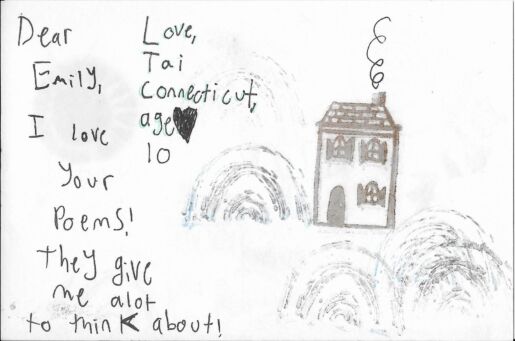 Dear
Emily,
I love
Your
Poems!
They give
me alot
to think about!
Love,
Tai
Connecticut,
age
10